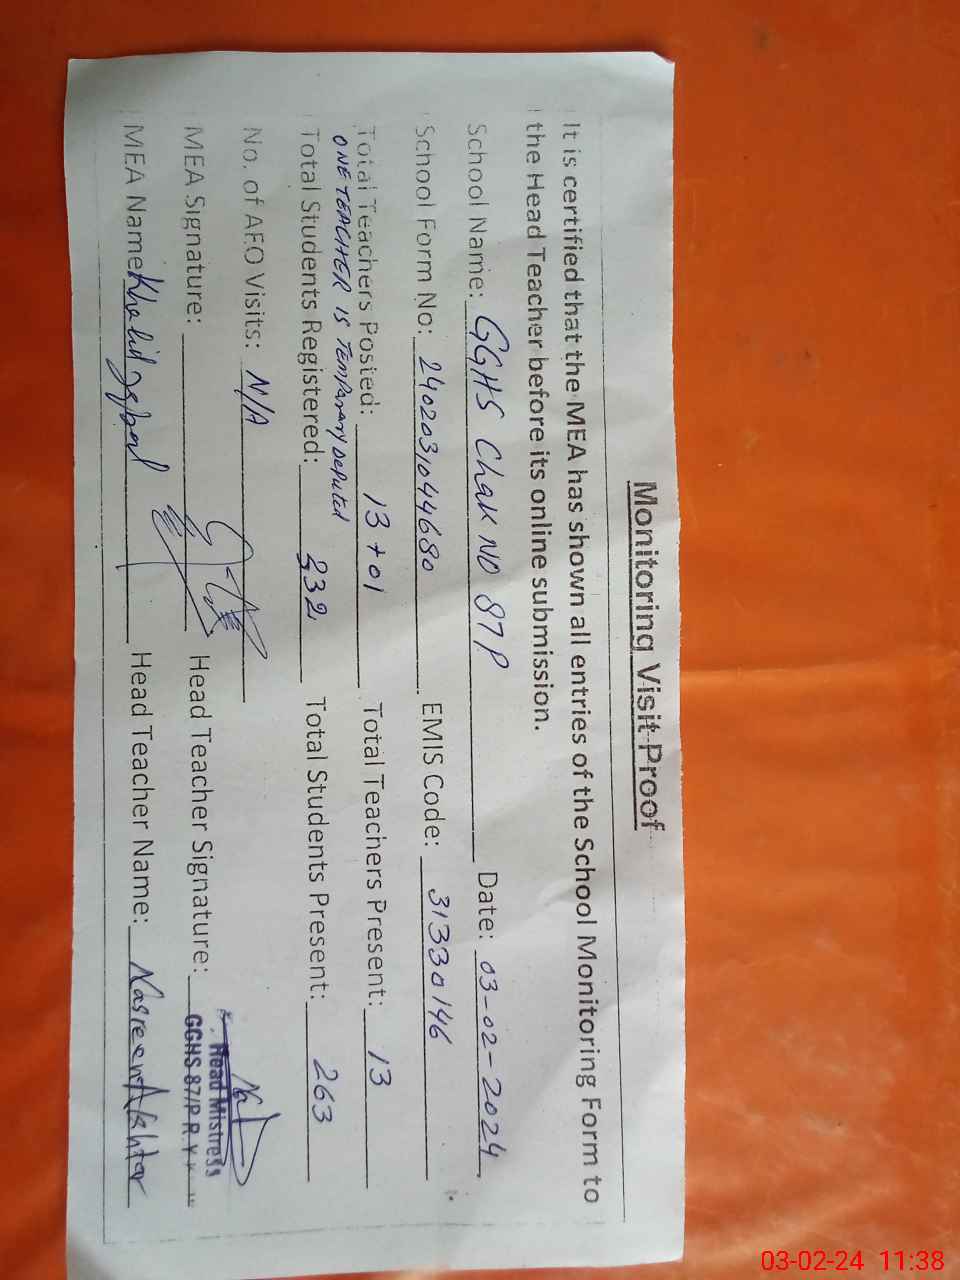 Monitoring Visit Proof
It is certified that the MEA has shown all entries of the School Monitoring Form to
the Head Teacher before its online submission.
School Name: GGHS Chak NO 87P Date: 03-02-2024
School Form No: 240203,044680 EMIS Code: 31330146
Total Teachers Posted: 13+01 Total Teachers Present: 13
ONE TEACHER IS TEMPARARY DEPUTED
Total Students Registered: 332 Total Students Present: 263
No. of AEO Visits: N/A
MEA Signature: Head Teacher Signature:
Head Mistress
GGHS 87/P R.Y.K
MEA Name Khalid Iqbal Head Teacher Name: Nasreen Akhtar
03-02-24 11:38